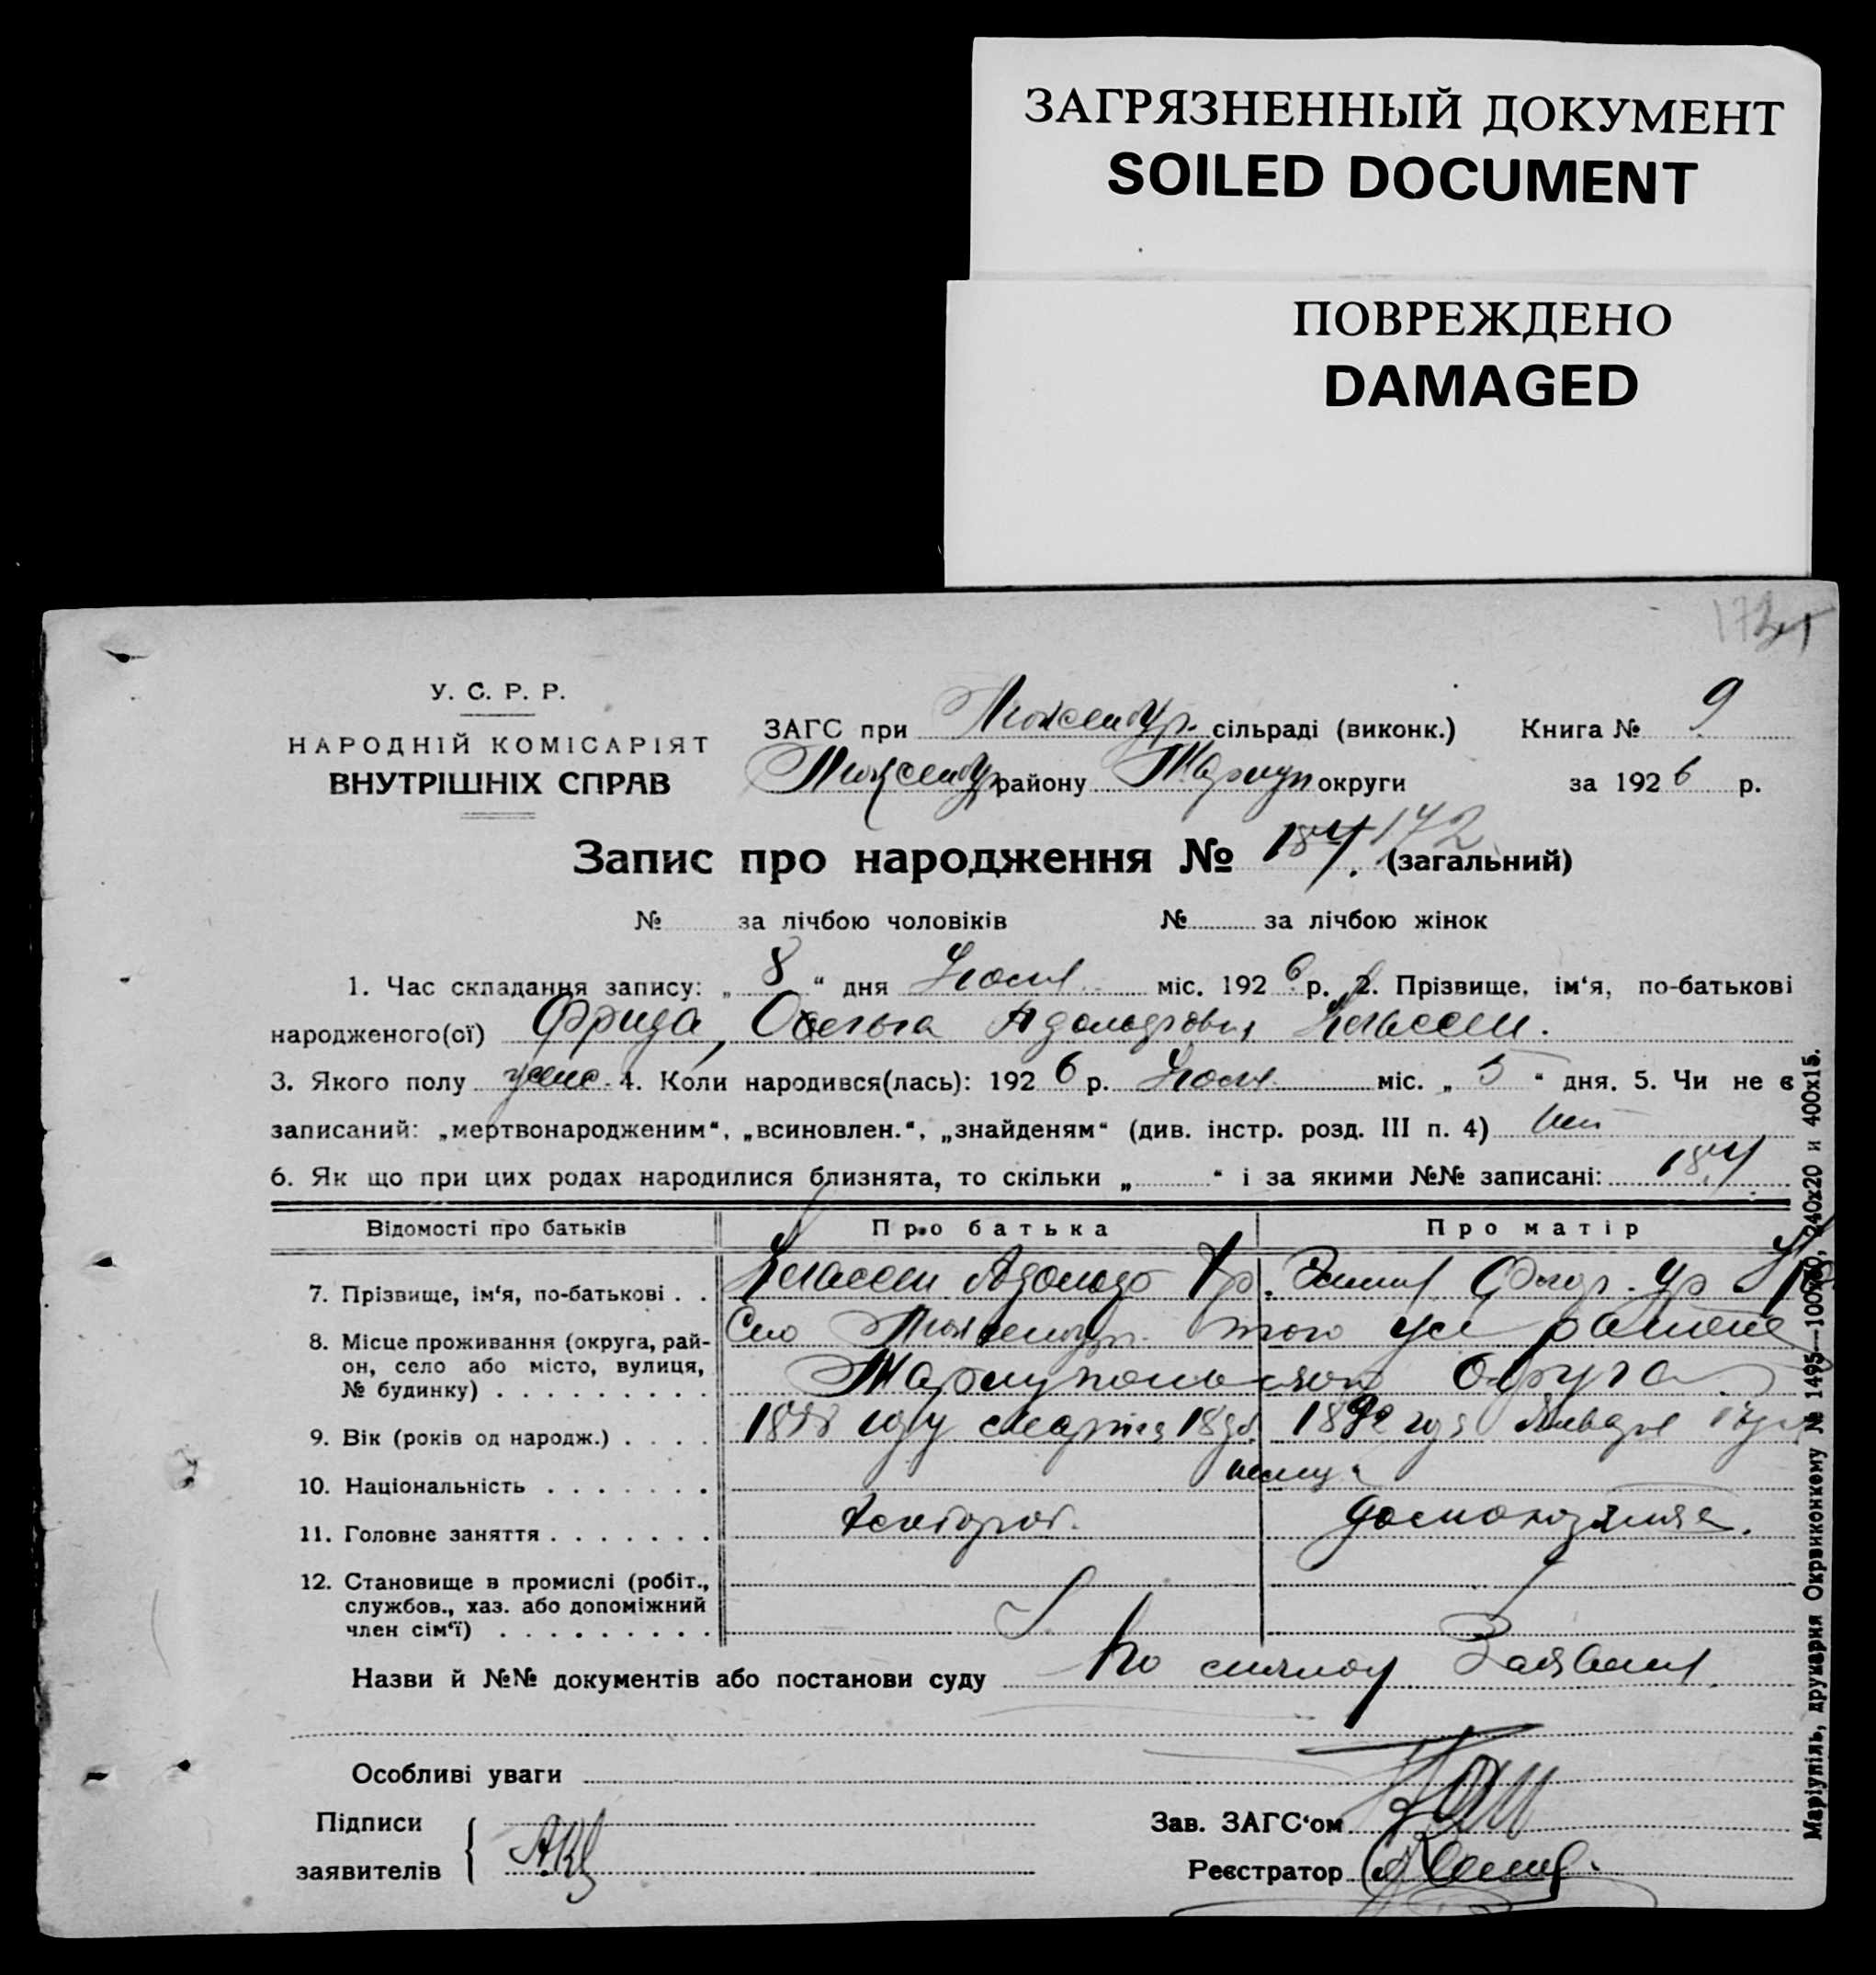 ЗАГРЯЗНЕННЫЙ ДОКУМЕНТ
SOILED DOCUMENT
ПОВРЕЖДЕНО
DAMAGED
У. С. Р. Р.
НАРОДНІЙ КОМІСАРІЯТ
ВНУТРІШНІХ СПРАВ
ЗАГС при Люксембур. сільраді (виконк.) Книга № 9
Люксембур району Мариуп округи за 1926 р.
Запис про народження № 184. 172 (загальний)
№ за лічбою чоловіків № за лічбою жінок
1. Час складання запису: „ 8 “ дня міс. 1926 р. 2. Прізвище, ім‘я, по-батькові
народженого(ої) Фрида, Адольфовна Классен.
3. Якого полу женс. 4. Коли народився(лась): 1926 р. міс. „ 5 “ дня. 5. Чи не є
записаний: „мертвонародженим“, „всиновлен.“, „знайденям“ (див. інстр. розд. III п. 4) Нет
6. Як що при цих родах народилися близнята, то скільки „ “ і за якими №№ записані: 184.
Відомості про батьків
Про батька
Про матір
7. Прізвище, ім‘я, по-батькові . .
Классен Адольф
8. Місце проживання (округа, рай-
он, село або місто, вулиця,
№ будинку) . . . . . . . . .
Село Люксембур. того же района
Мариупольской Округа
9. Вік (років од народж.) . . . .
году марта 18 Января
10. Національність . . . . . . .
немцы
11. Головне заняття . . . . . . .
хлебороб.
домохозяйка.
12. Становище в промислі (робіт.,
службов., хаз. або допоміжний
член сім‘ї) . . . . . . . . .
Назви й №№ документів або постанови суду По Заявлен.
Особливі уваги
Підписи
заявителів
Зав. ЗАГС‘ом
Реєстратор
Маріупіль, друкарня Окрвиконкому № 1495—100х50, 240х20 и 400х15.